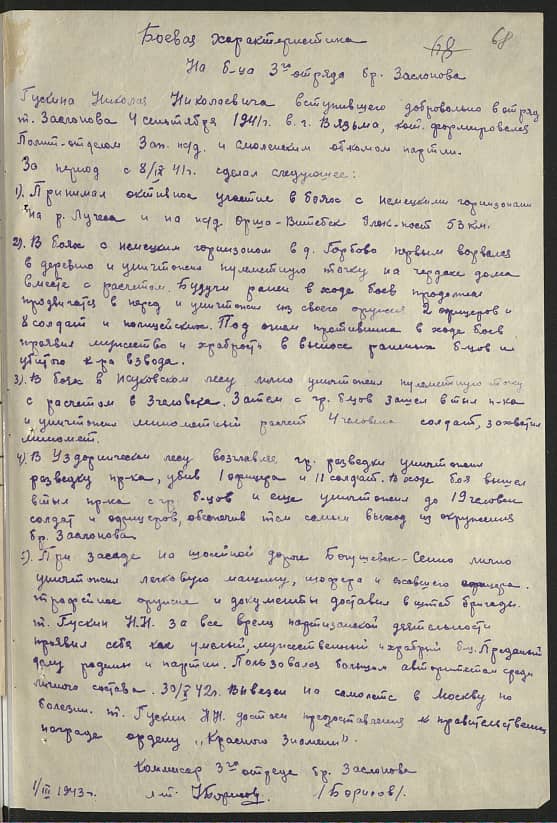 68 68
Боевая характеристика
На б-ца 3го отряда бр. Заслонова
Гускина Николая Николаевича вступившего добровольно в отряд
т. Заслонова 4 сентября 1941г. в г. Вязьма, кот. формировался
Полит-отделом Зап. ж/д. и Смоленским обкомом партии.
За период с 8/IX 41г. сделал следующее:
1). Принимал активное участие в боях с немецкими гарнизонами
на р. Лучеса и на ж/д. Орша-Витебск Блок-пост 53 км.
2). В боях с немецким гарнизоном в д. Горбово первым ворвался
в деревню и уничтожил пулеметную точку на чердаке дома
вместе с расчетом. Будучи ранен в ходе боев продолжал
продвигатся в перед и уничтожил из своего оружия 2 офицеров и
8 солдат и полицейских. Под огнем противника в ходе боев
проявил мужество и храбрость в выносе раненых б-цов и
убитого к-ра взвода.
3). В боях в лесу лично уничтожил пулеметную точку
с расчетом в 3 человека. Затем с гр. б-цов зашел в тыл п-ка
и уничтожил минометный расчет 4 человека солдат, захватил
миномет.
4). В лесу возглавляя гр. разведки уничтожил
разведку пр-ка, убив 1 офицера и 11 солдат. В ходе боя вышел
в тыл пр-ка с гр. б-цов и еще уничтожил до 19 человек
солдат и офицеров, обеспечив тем самым выход из окружения
бр. Заслонова.
5). При засаде на шоссейной дороге Богушевск-Сенно лично
уничтожил легковую машину, шофера и ехавшего офицера.
трофейное оружие и документы доставил в штаб бригады.
т. Гускин Н.Н. за все время партизанской деятельности
проявил себя как умелый, мужественный и храбрый б-ц. Преданный
делу родины и партии. Пользовался большим авторитетом среди
личного состава. 30/X 42г. Вывезен на самолете в Москву по
болезни. т. Гускин Н.Н. достоен предоставления к правительственной
награде ордену „Красного Знамени".
Комиссар 3го отряда бр. Заслонова
1/III 1943г. л-т. Борисов /Борисов/.